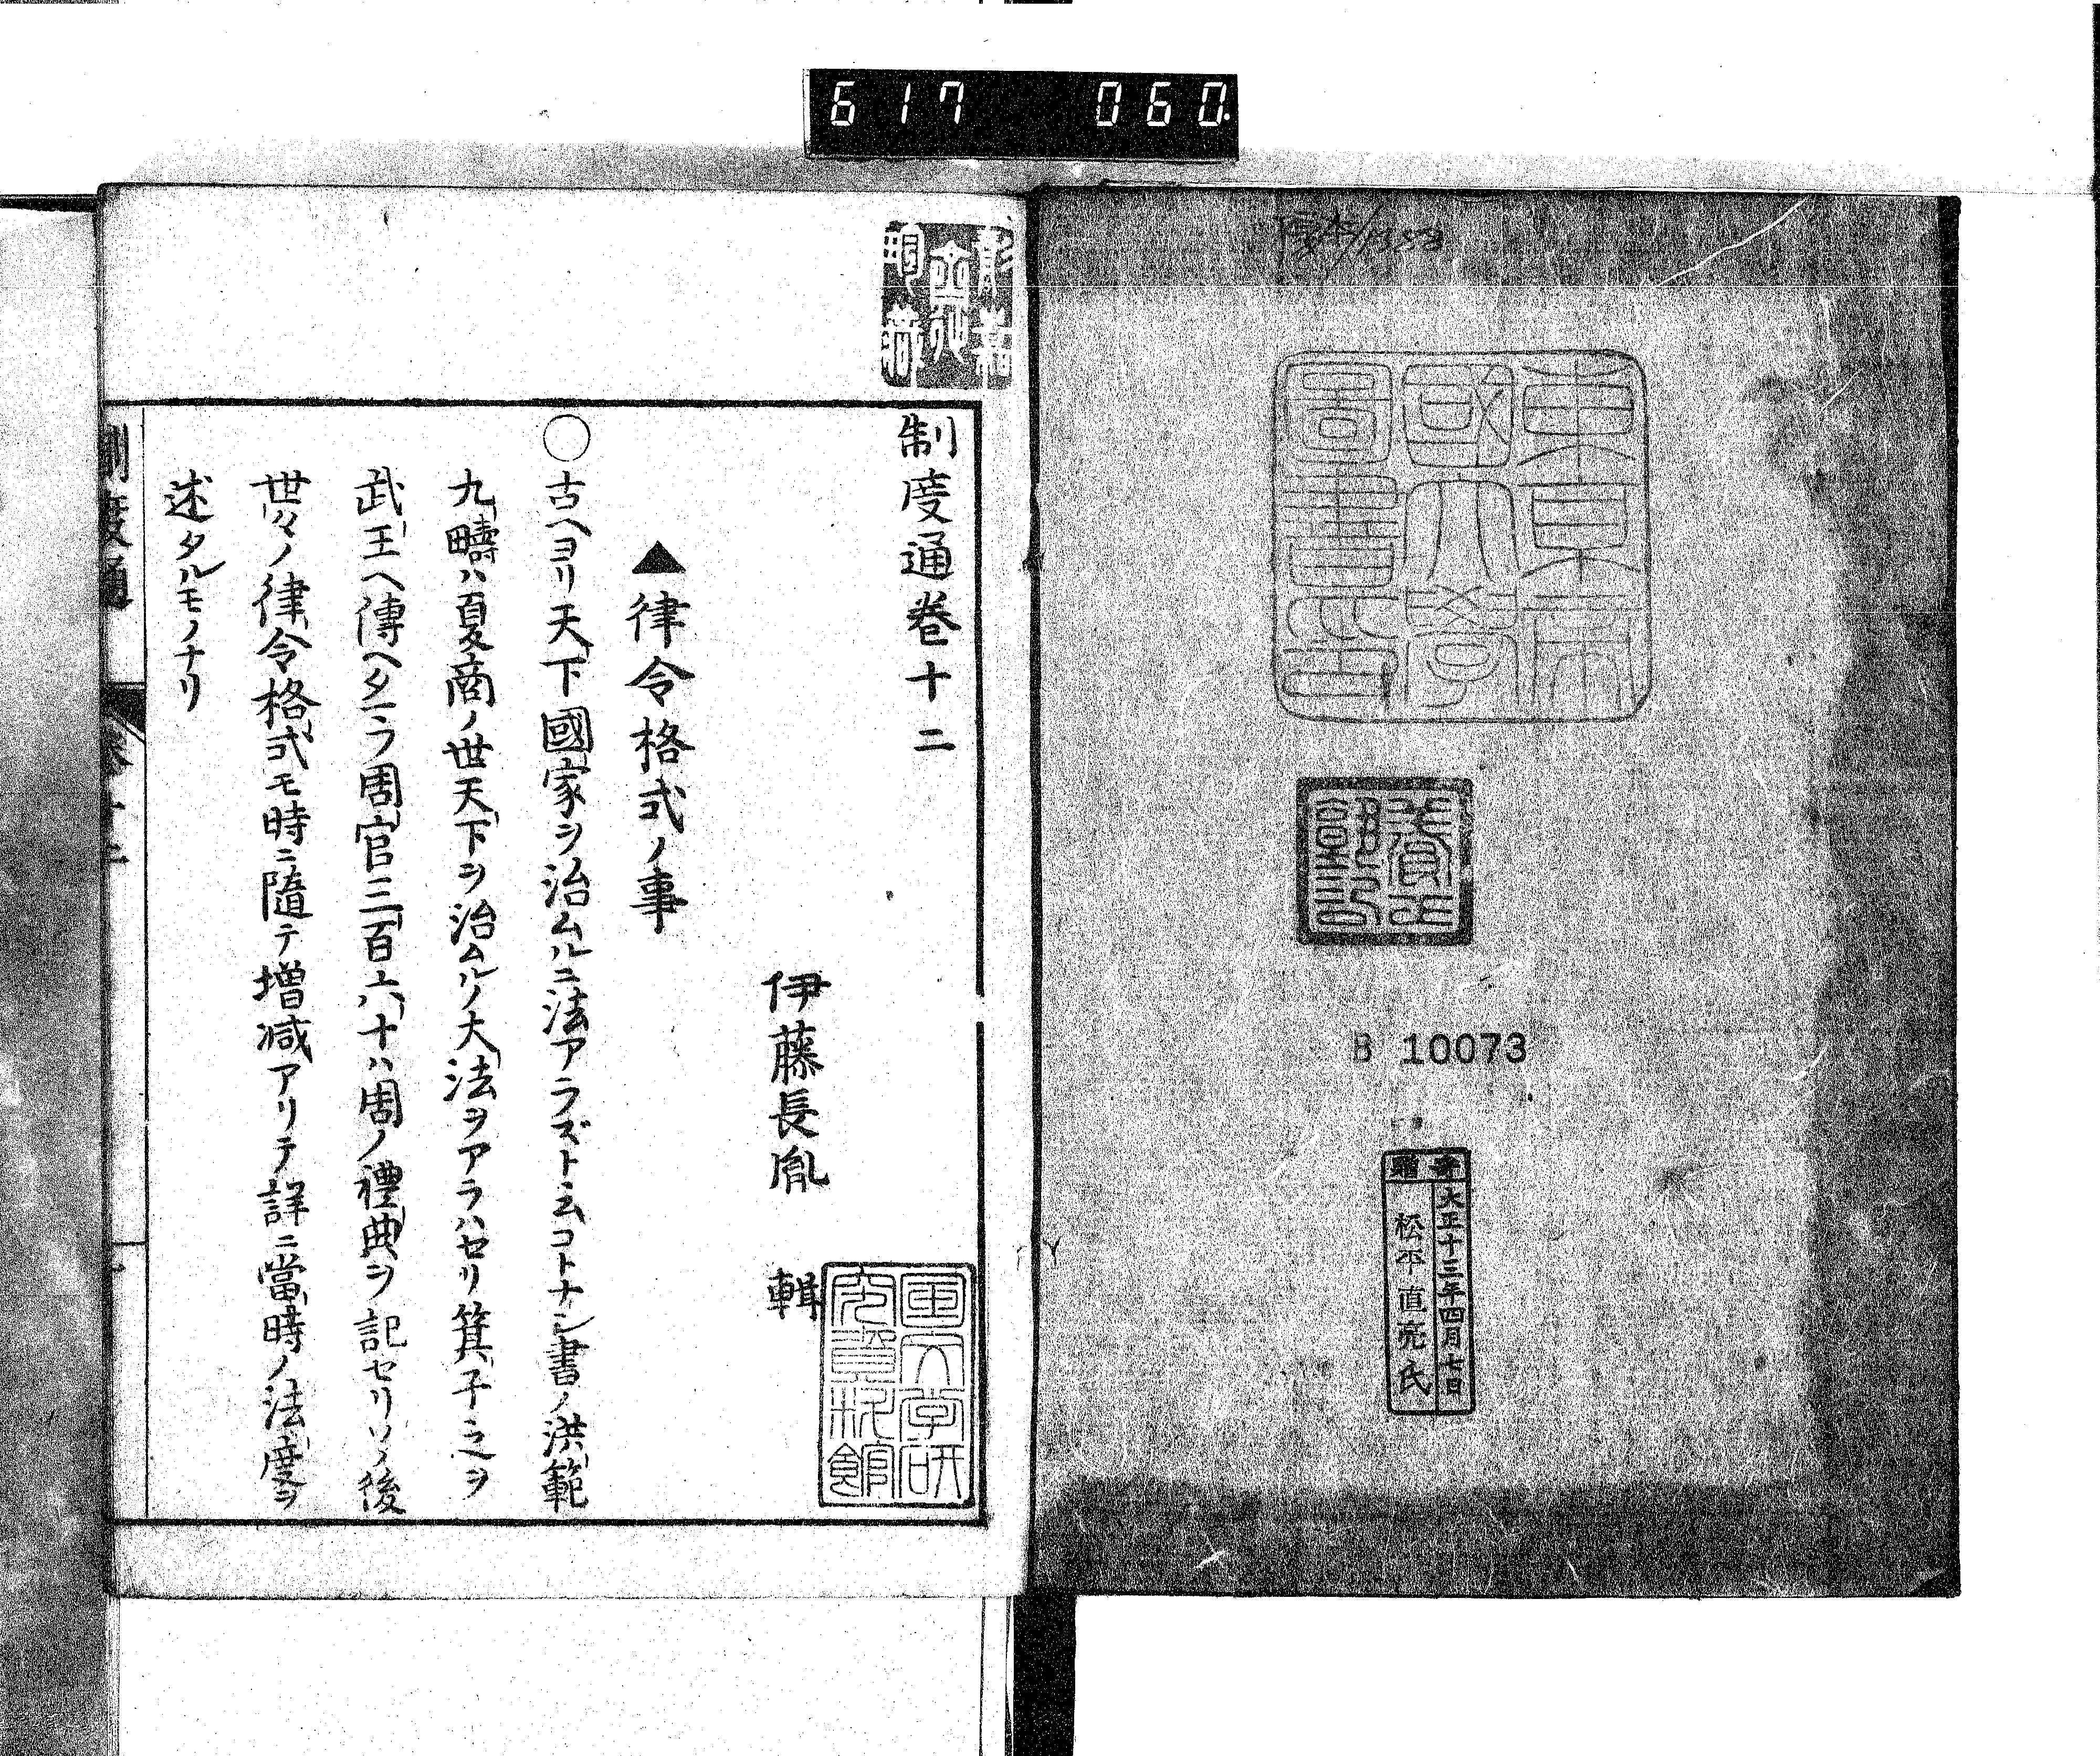 617 060
東京帝
國大學
圖書印
B 10073
寄贈
大正十三年四月七日
松平直亮氏
制度通卷十二
伊藤長胤 輯
國文学研
究資料館
▲律令格式ノ事
○古ヘヨリ天下國家ヲ治ムルニ法アラズト云コトナシ書ノ洪範
九疇ハ夏商ノ世天下ヲ治ムルノ大法ヲアラハセリ箕子之ヲ
武王ヘ傳ヘタマフ周官三百六十ハ周ノ禮典ヲ記セリソノ後
世々ノ律令格式モ時ニ隨テ増减アリテ詳ニ當時ノ法度ヲ
述タルモノナリ
制度通
卷十二
一